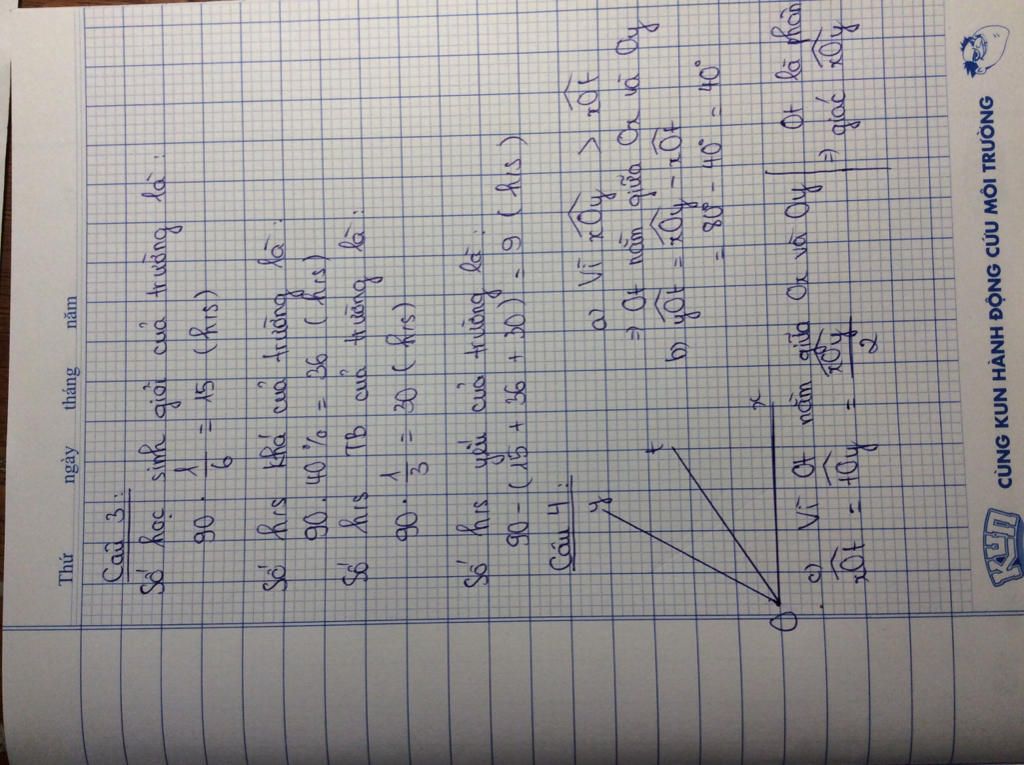 Thứ ngày tháng năm
Câu 3:
Số học sinh giỏi của trường là:
90 . 1/6 = 15 (h/s)
Số h/s khá của trường là:
90 . 40% = 36 (h/s)
Số h/s TB của trường là:
90 . 1/3 = 30 (h/s)
Số h/s yếu của trường là:
90 - (15 + 36 + 30) = 9 (h/s)
Câu 4:
y
t
x
O
a) Vì xOy > xOt
=> Ot nằm giữa Ox và Oy
b) yOt = xOy - xOt
= 80° - 40° = 40°
c) Vì Ot nằm giữa Ox và Oy
xOt = tOy = xOy/2
=> Ot là phân
giác xOy
KUN
CÙNG KUN HÀNH ĐỘNG CỨU MÔI TRƯỜNG